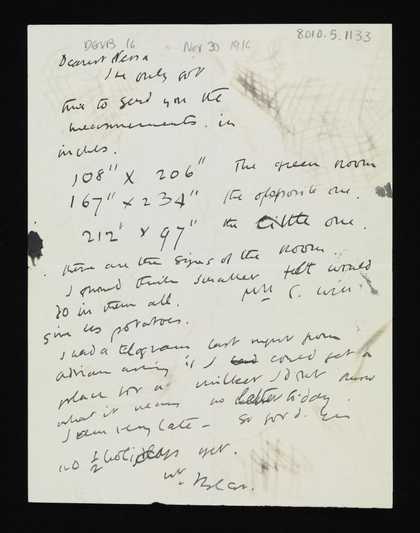 DGVB 16 Nov 30 1916 8010.5.1133
Dearest Nessa
I've only got
time to send you the
measurements. in
inches.
108" x 206" The green room
167" x 234" the opposite one.
212" x 97" the little one.
these are the sizes of the room.
I should think smaller felt would
do in them all. Mrs C. will
give us potatoes.
I had a telegram last night from
adrian asking if I could get a
place for a I don't know
what it means no letter today.
I very late – So good.
no ½ yet.